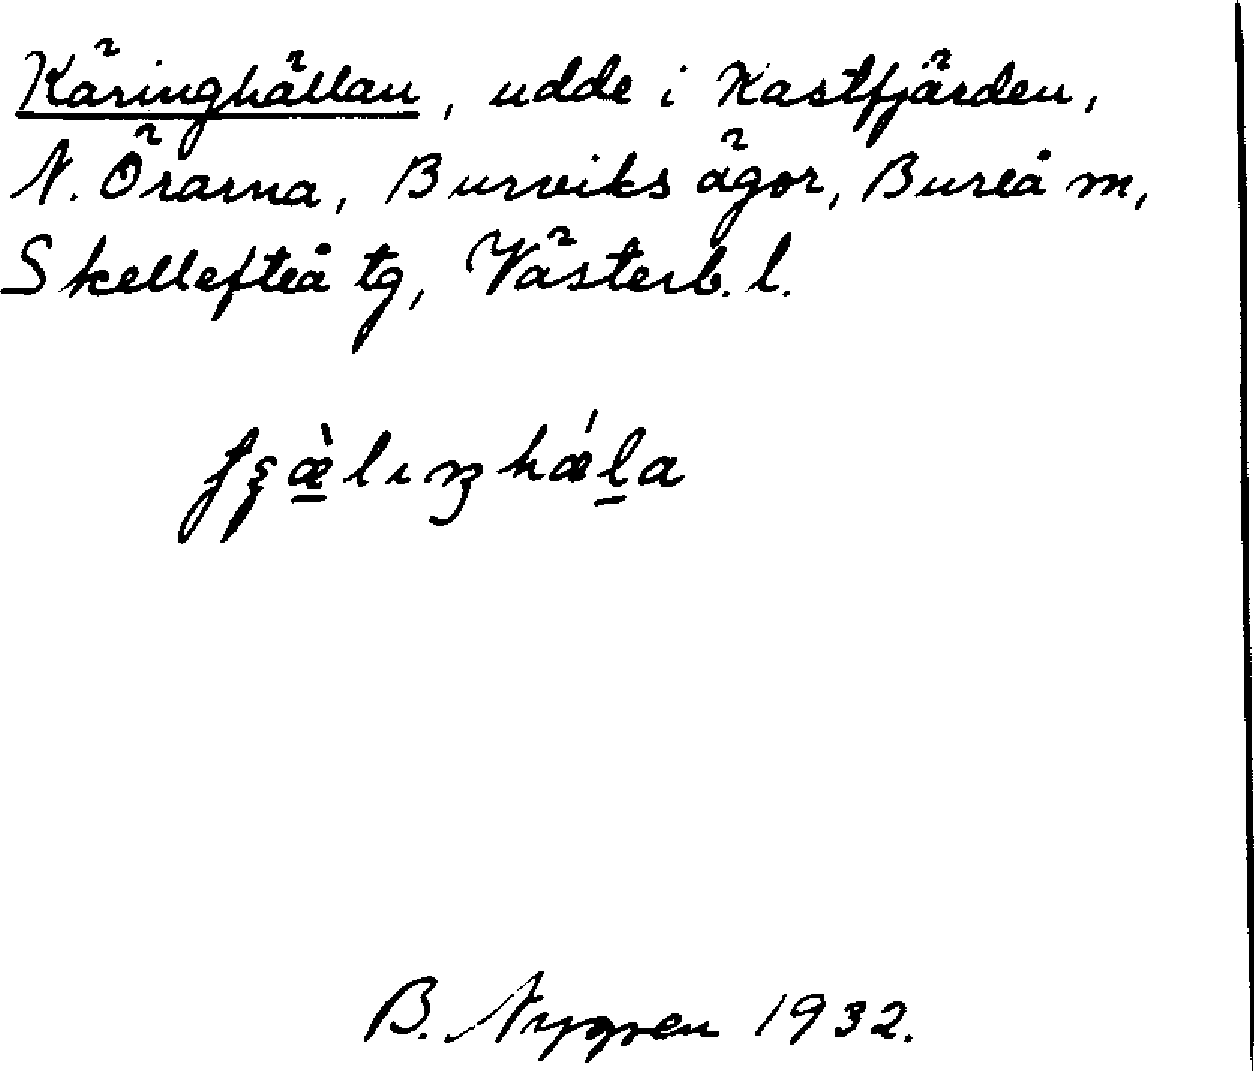 Käringhällan, udde i Kastfjärden,
N. Örarna, Burviks ägor, Bureå m,
Skellefteå tg, Västerb. l.
B. Nygren 1932.